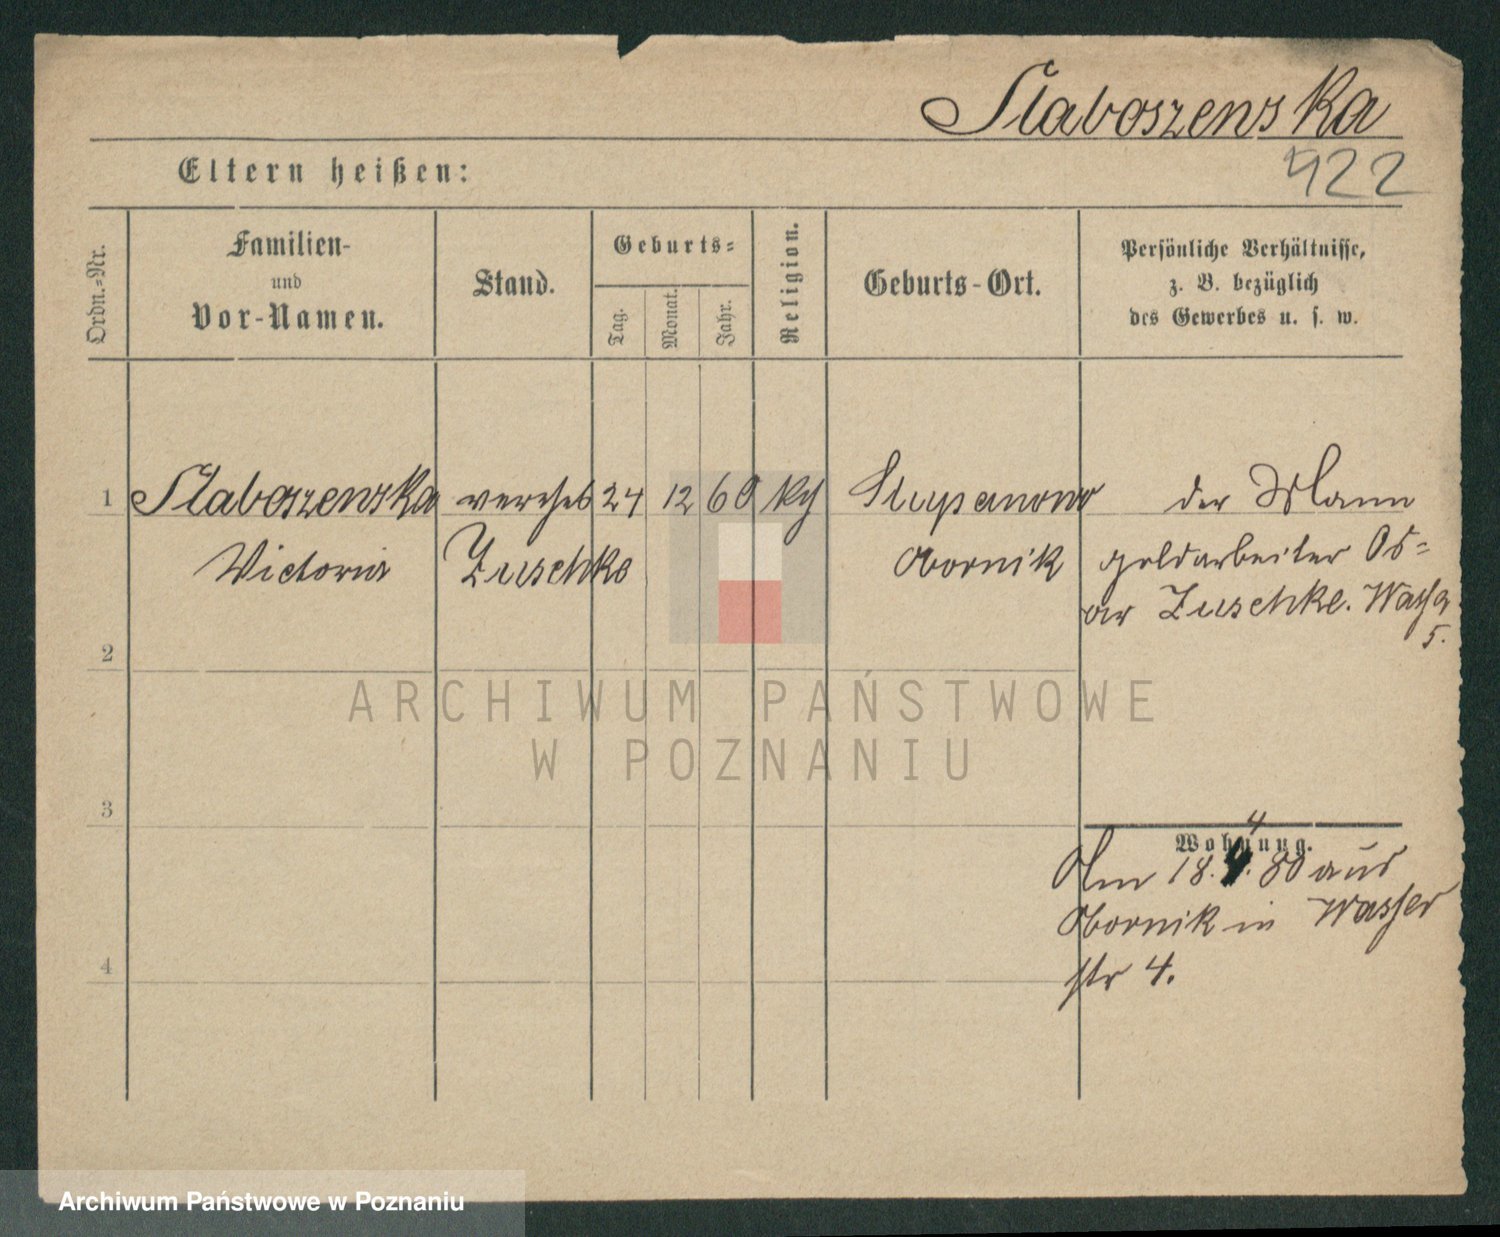 Slaboszenska
922
Eltern heißen:
Ordn.-Nr.
Familien-
und
Vor-Namen.
Stand.
Geburts-
Tag.
Monat.
Jahr.
Religion.
Geburts-Ort.
Persönliche Verhältnisse,
z. B. bezüglich
des Gewerbes u. s. w.
1 Slaboszenska verehel 24 12 60 der Mann
Victoria Zuschke Obornik goldarbeiter Os-
car Zuschke. Wasser
5.
2
ARCHIWUM PAŃSTWOWE
W POZNANIU
3
4
Wohnung.
Am 18. 4. 80 aus
Obornik in Wasser
4
str 4.
Archiwum Państwowe w Poznaniu